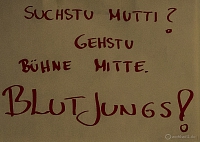 SUCHSTU MUTTI?
GEHSTU
BÜHNE MITTE.
BLUTJUNGS!